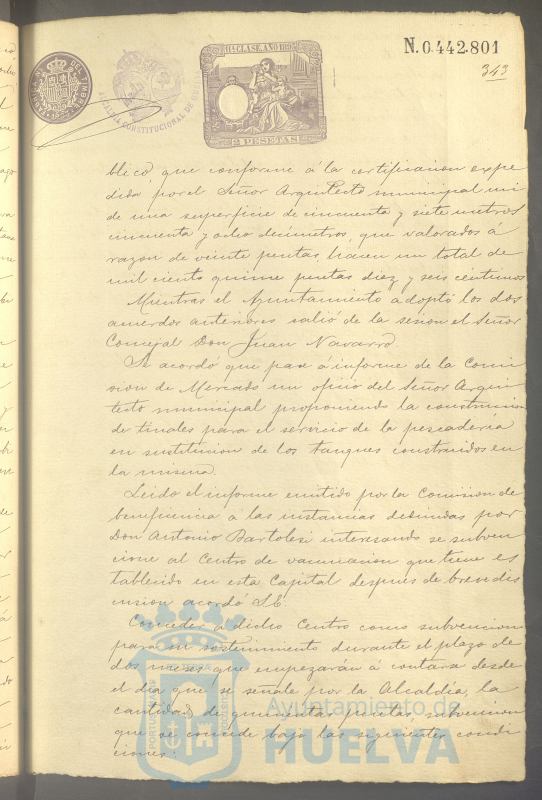 11ª CLASE. AÑO 189
2 PESETAS
ALCALDIA CONSTITUCIONAL DE
N.0.442.801
343
blico que conforme á la certificacion expe
dida por el Señor Arquitecto municipal mi
de una superficie de cincuenta y siete metros
cincuenta y ocho decimetros, que valorados á
razon de veinte pesetas, hacen un total de
mil ciento quince pesetas diez y seis centimos
Mientras el Ayuntamiento adoptó los dos
acuerdos anteriores salió de la sesion el Señor
Concejal Don Juan Navarro
Se acordó que pase á informe de la Comi
sion de Mercado un oficio del Señor Arqui
tecto municipal proponiendo la construccion
de tinales para el servicio de la pescadería
en sustitucion de los tanques construidos en
la misma.
Leido el informe emitido por la Comision de
beneficencia a las instancias deducidas por
Don Antonio Bartolesi interesando se subven
cione al Centro de vacunacion que tiene es
tablecido en esta Capital despues de breve dis
cusion acordó S.E.
Conceder a dicho Centro como subvencion
para su sostenimiento durante el plazo de
dos meses que empezarán á contarse desde
el dia que se señale por la Alcaldia, la
cantidad de quinientas pesetas, subvencion
que se concede bajo las siguientes condi
ciones:
Ayuntamiento de
HUELVA